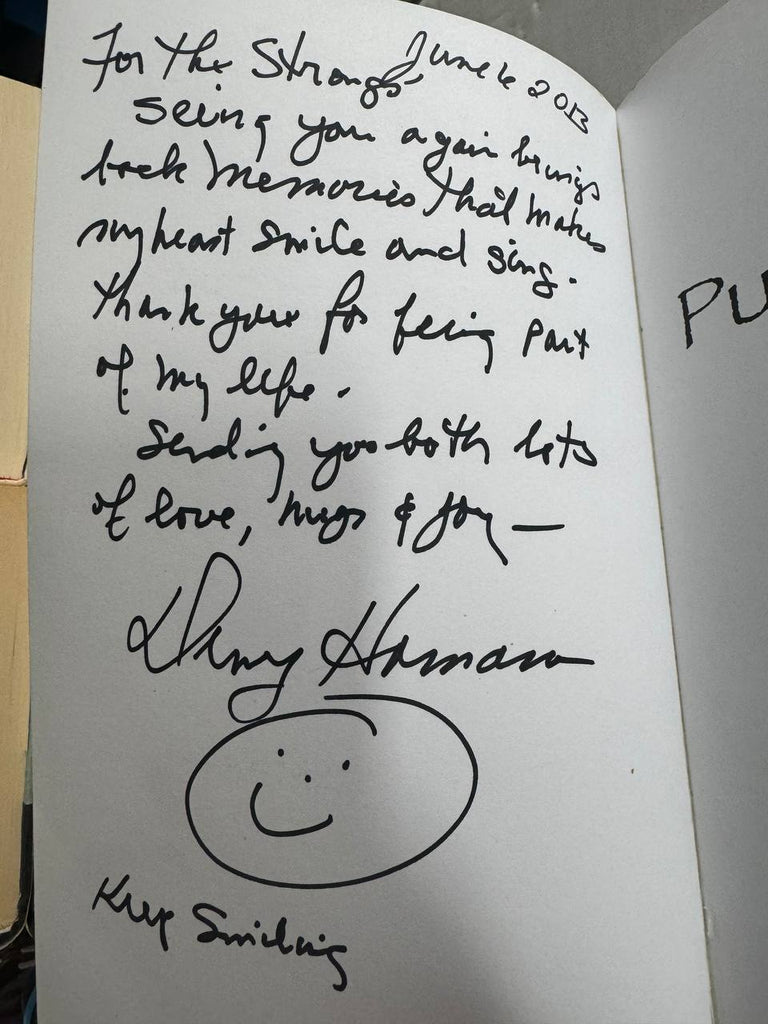 June 6 2013
For The Strongs
seing you again brings
back memories that makes
my heart smile and sing.
Thank you for being part
of my life.
Sending you both lots
of love, hugs & joy —
Keep Smiling
PU